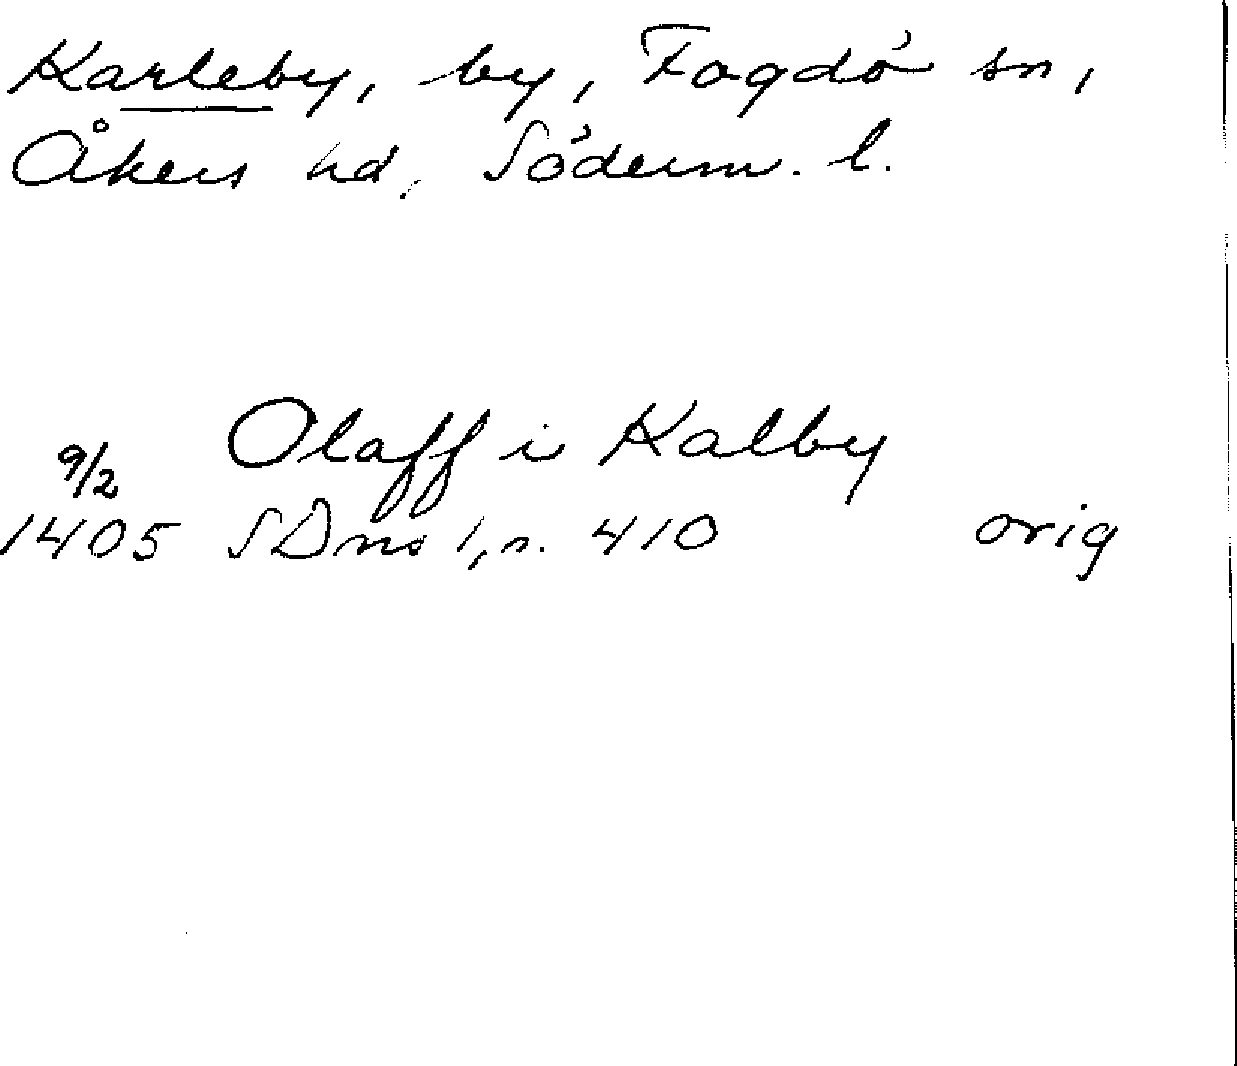 Karleby, by, Fogdö sn,
Åkers hd, Söderm. l.
9/2 Olaff i Kalby
1405 SDns 1, s. 410 orig